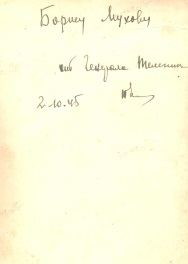 Борису Мухову
от Генерала Телегин
2.10.45